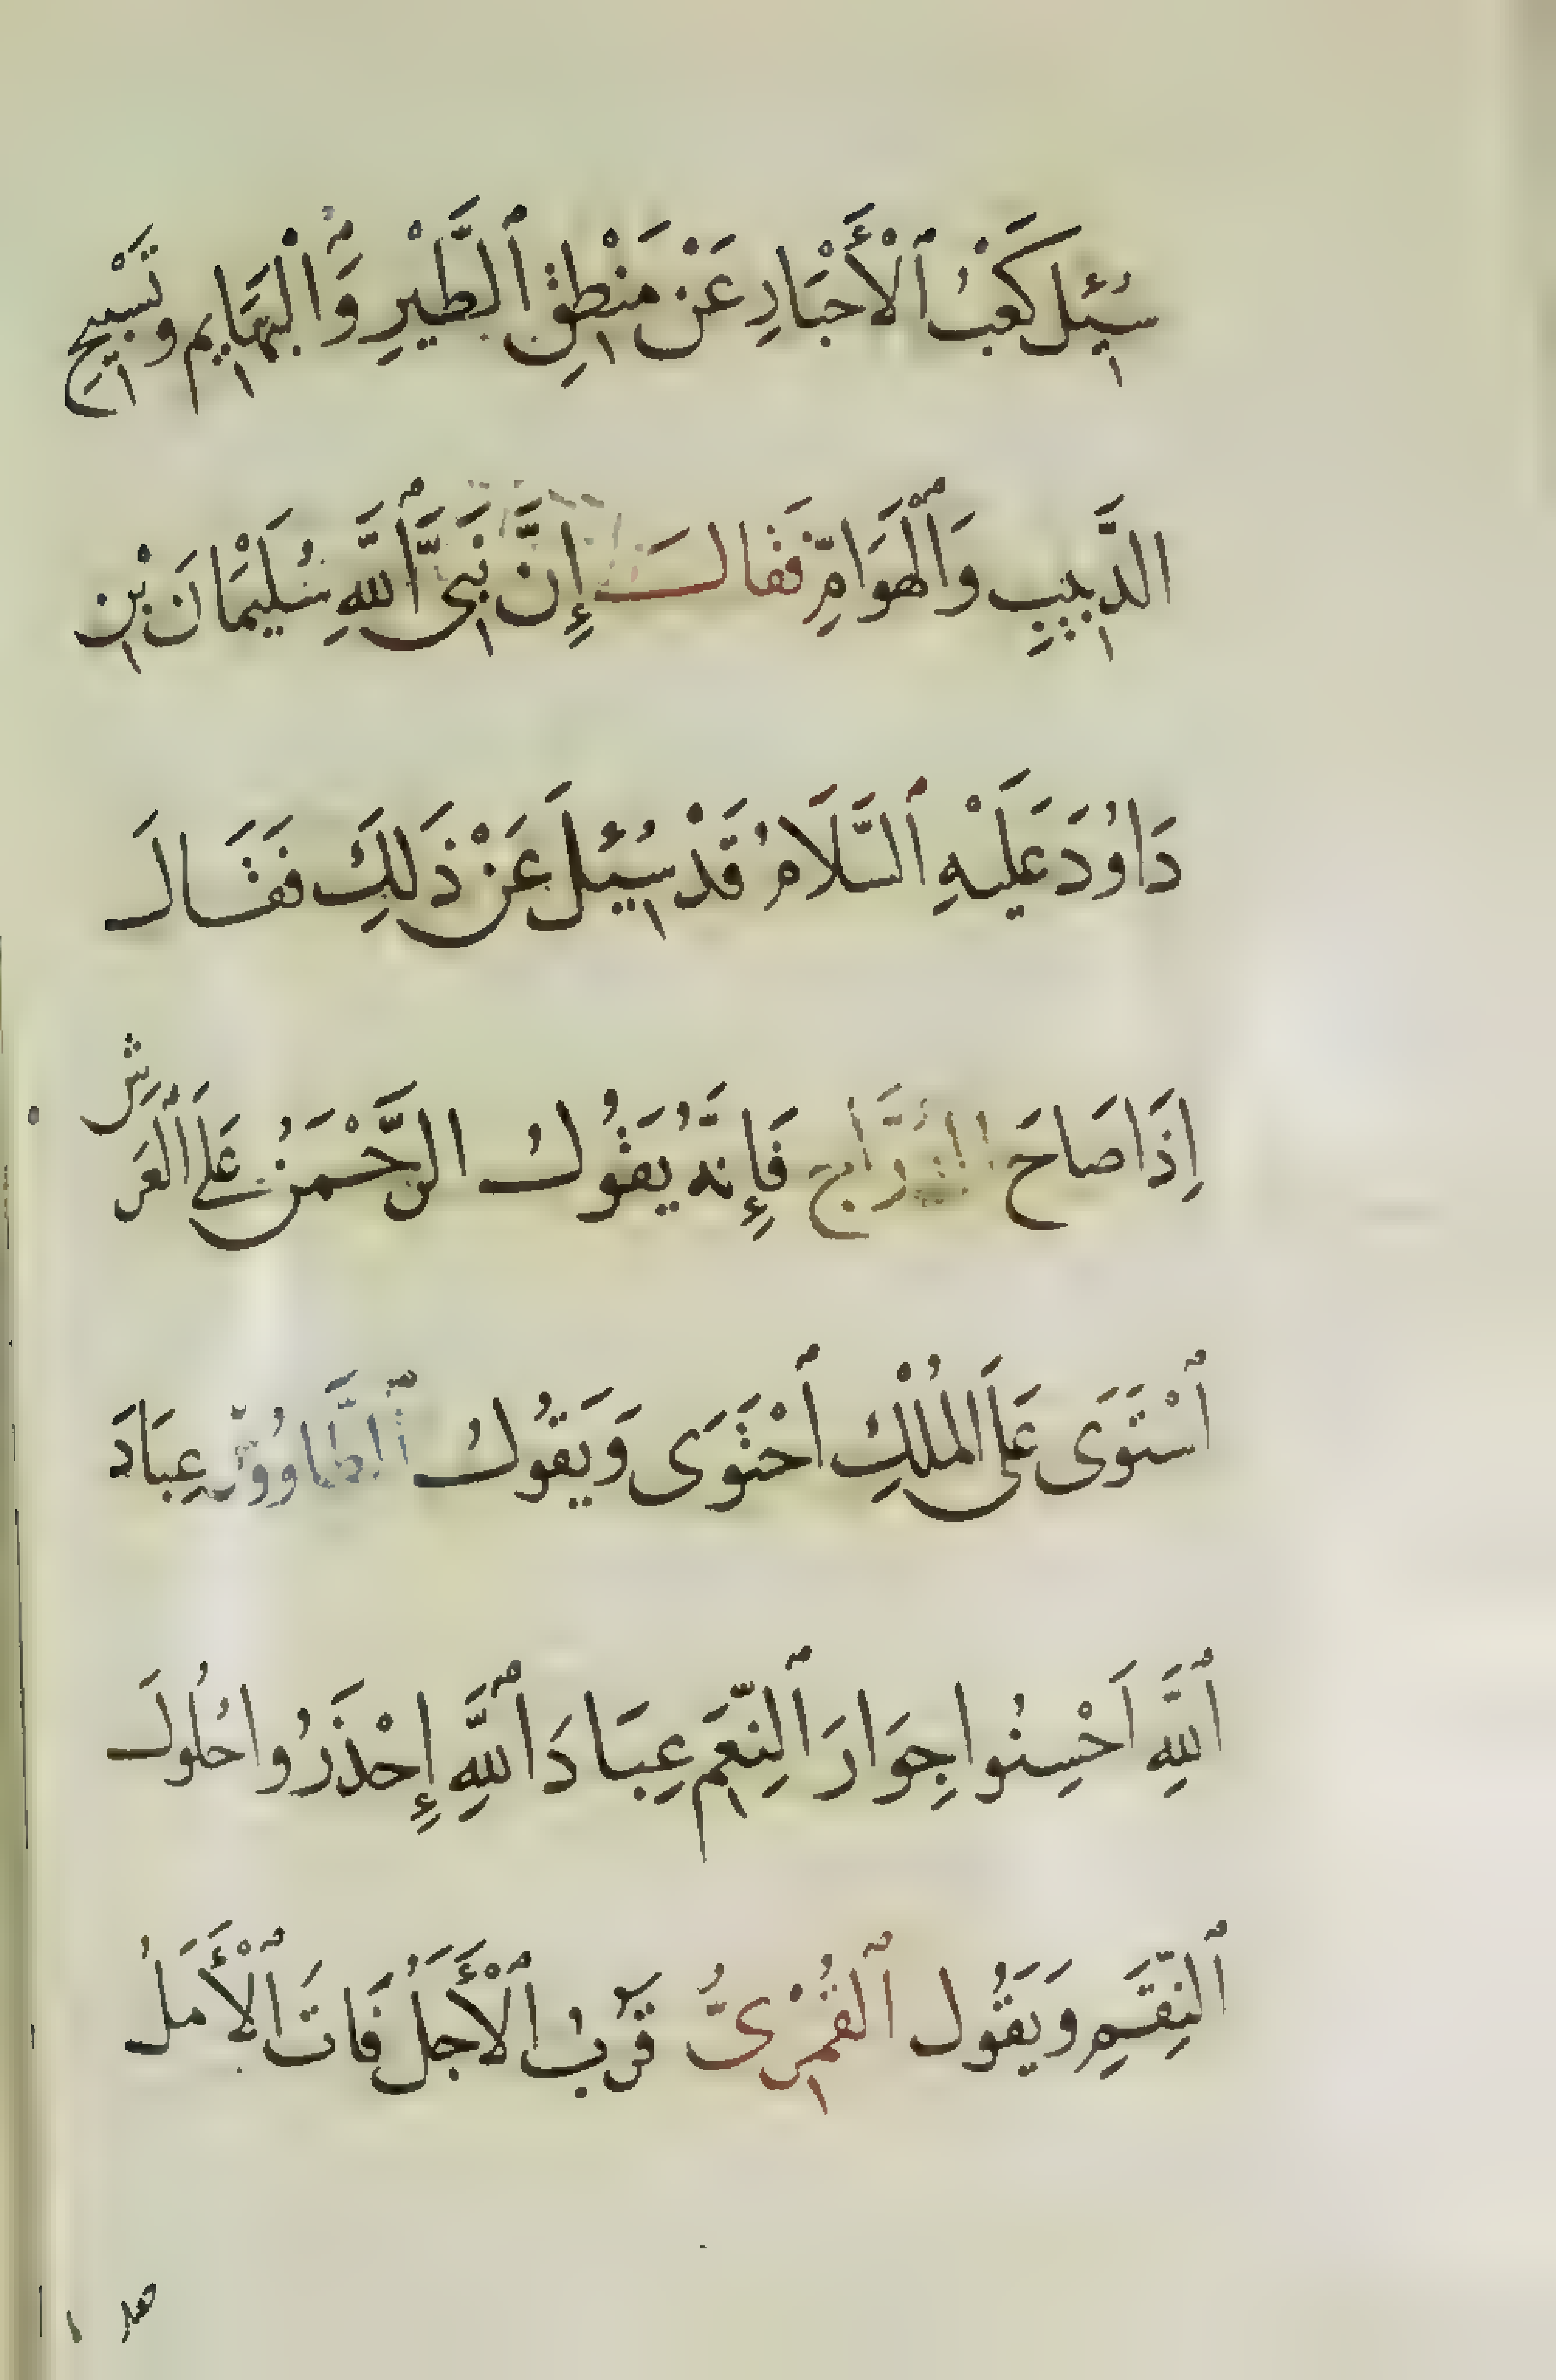 سُئِلَ كَعْبُ ٱلْأَحْبَارِ عَنْ مَنْطِقِ ٱلطَّيْرِ وَٱلْبَهَايِمِ وَتَسْبِيحِ
الدَّبِيبِ وَٱلْهَوَامِّ فَقَالَ إِنَّ نَبِىَّ ٱللَّهِ سُلَيْمَانَ بْنِ
دَاوُدَ عَلَيْهِ ٱلسَّلَامُ قَدْ سُئِلَ عَنْ ذَلِكَ فَقَالَ
اِذَا صَاحَ الدُّرَّاج فَإِنَّهُ يَقُولُ الرَّحْمَنُ عَلَى ٱلْعَرْشِ
ٱسْتَوَى عَلَى الْمُلْكِ ٱحْتَوَى وَيَقُولُ ٱلطَّاوُوسُ عِبَادَ
ٱللَّهِ اَحْسِنُوا جِوَارَ ٱلنِّعَمِ عِبَادَ ٱللَّهِ إِحْذَرُوا حُلُولَ
ٱلنِّقَمِ وَيَقُول ٱلْقُمْرِىُّ قَرُبَ ٱلْأَجَلُ فَاتَ ٱلْأَمَلُ